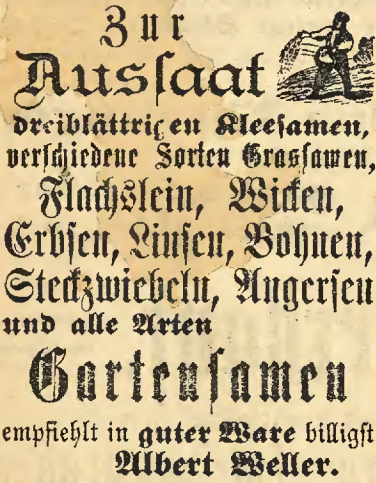 Zur
Ausſaat
dreiblättrigen Kleeſamen,
verſchiedene Sorten Grasſamen,
Flachslein, Wicken,
Erbſen, Linſen, Bohnen,
Steckzwiebeln, Angerſen
und alle Arten
Gartenſamen
empfiehlt in guter Ware billigſt
Albert Weller.